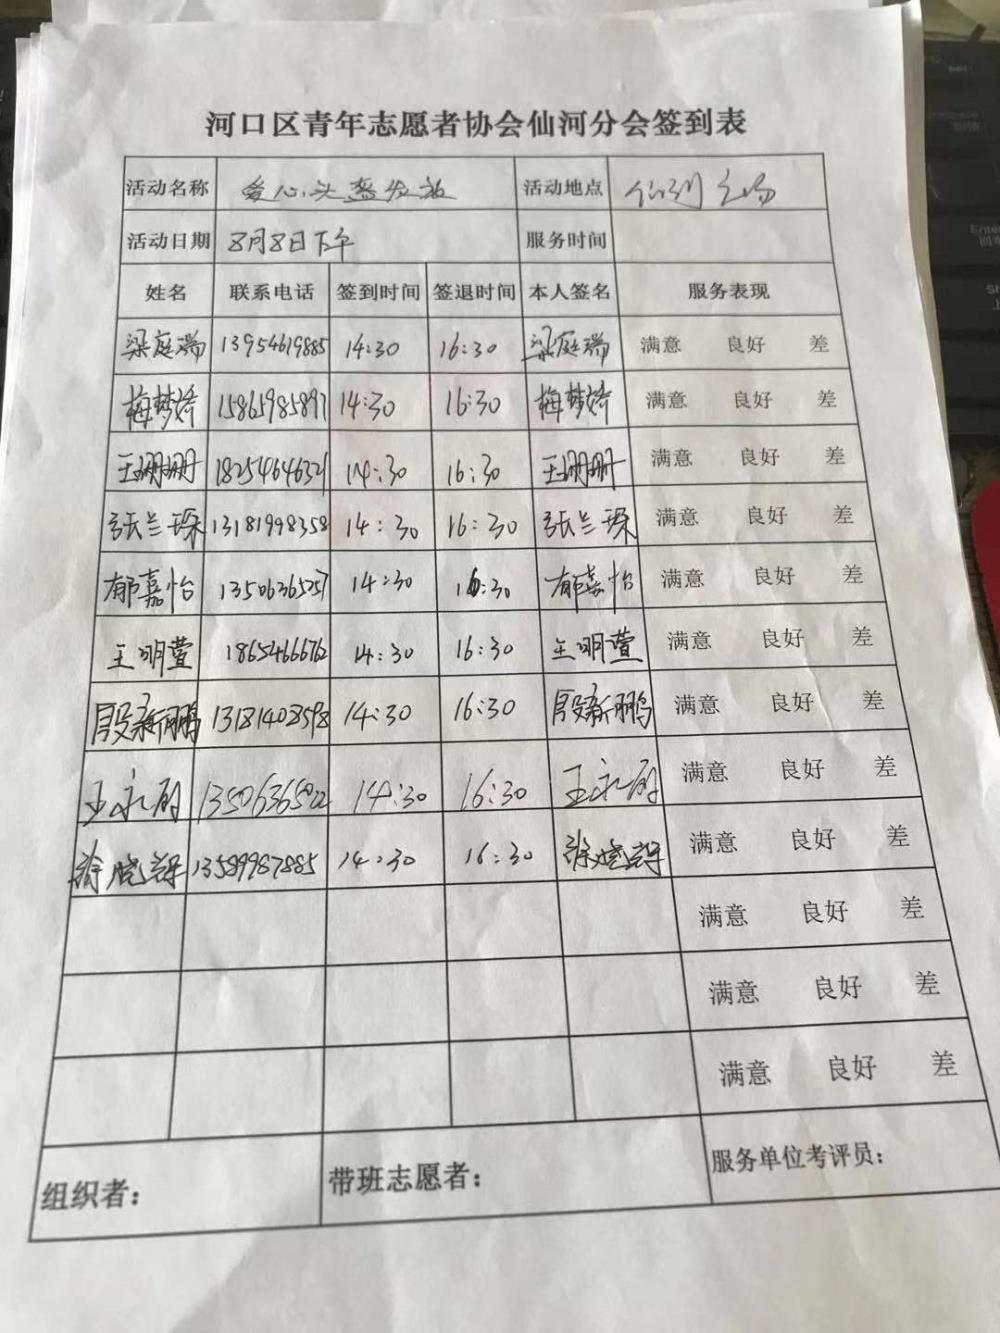 河口区青年志愿者协会仙河分会签到表
活动名称 爱心头盔发放 活动地点 仙河广场
活动日期 8月8日下午 服务时间
姓名 联系电话 签到时间 签退时间 本人签名 服务表现
梁庭瑞 13954619885 14:30 16:30 梁庭瑞 满意 良好 差
梅梦娇 15865985897 14:30 16:30 梅梦娇 满意 良好 差
王珊珊 18254646321 14:30 16:30 王珊珊 满意 良好 差
张兰琛 13181998358 14:30 16:30 张兰琛 满意 良好 差
郁嘉怡 13506365257 14:30 16:30 郁嘉怡 满意 良好 差
王明萱 18654666762 14:30 16:30 王明萱 满意 良好 差
殷新鹏 13181408598 14:30 16:30 殷新鹏 满意 良好 差
王永 13506365022 14:30 16:30 王永 满意 良好 差
徐晓 13589987885 14:30 16:30 徐晓 满意 良好 差
满意 良好 差
满意 良好 差
满意 良好 差
组织者： 带班志愿者： 服务单位考评员：